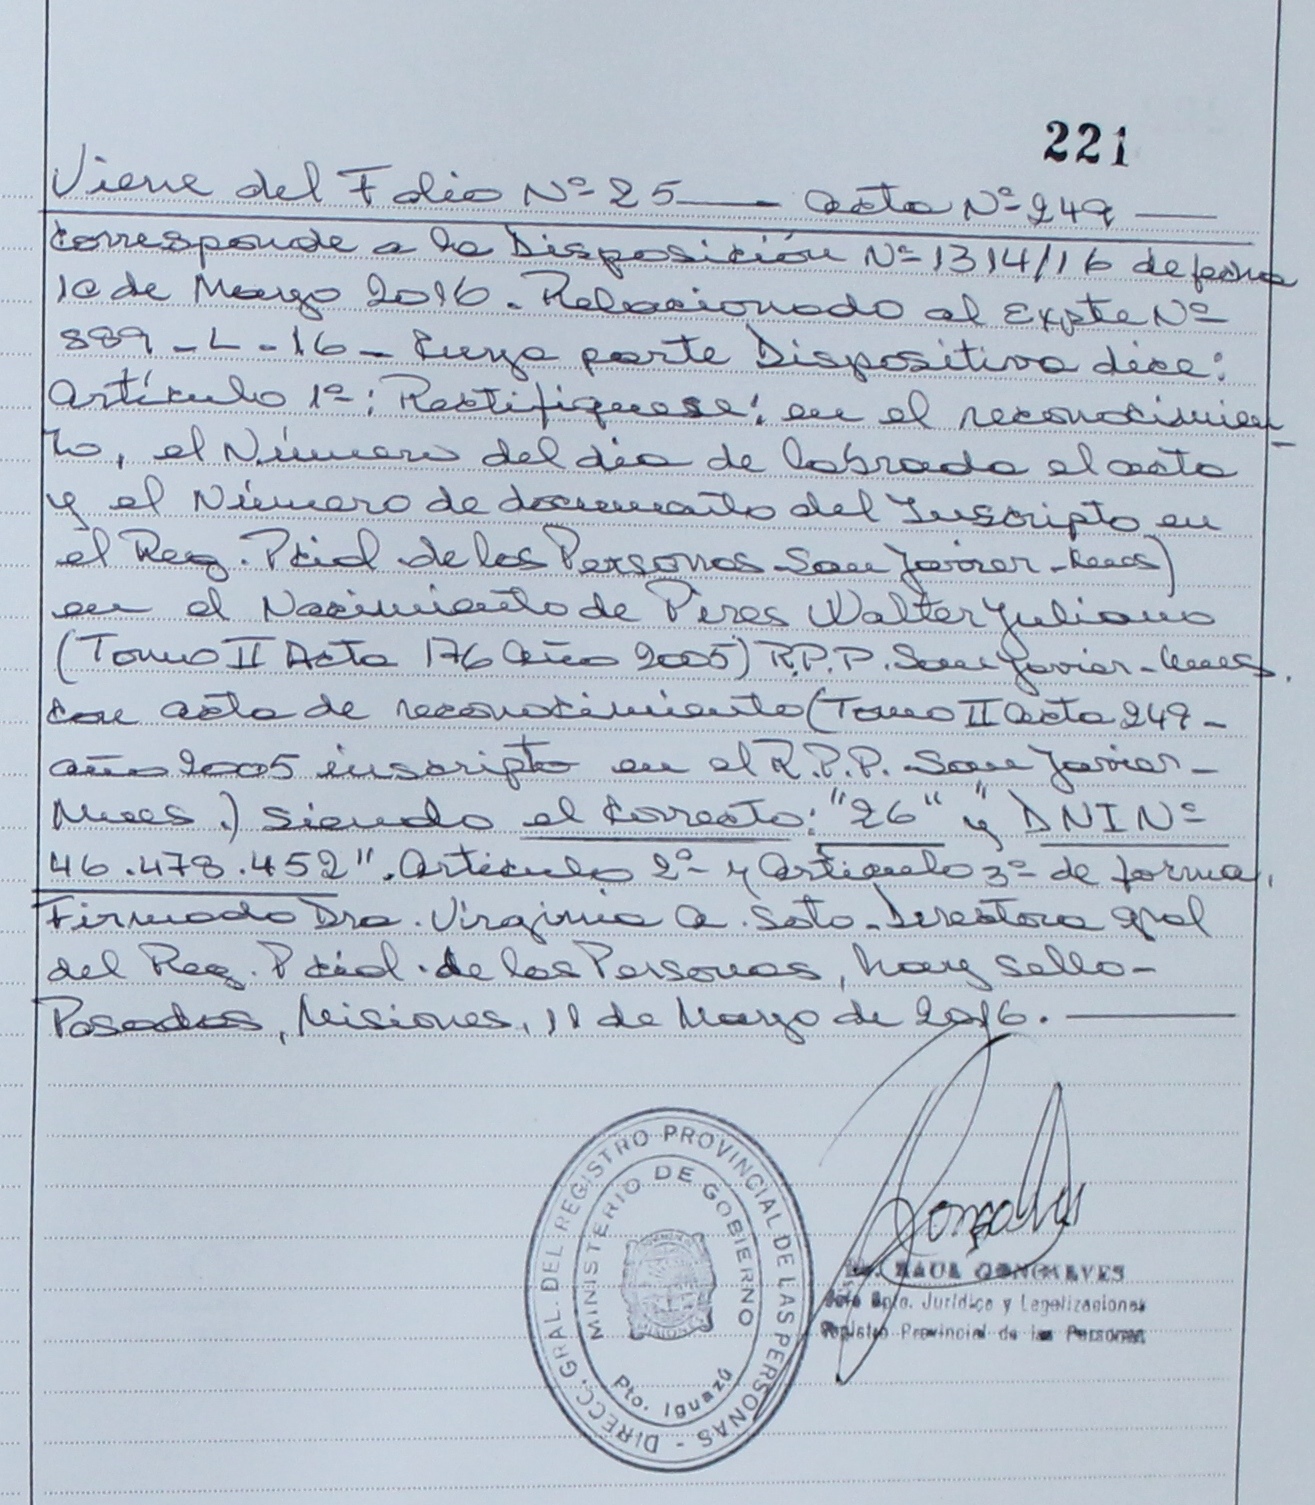 221
Viene del Folio Nº 25 — acta Nº 249 —
Corresponde a la Disposición Nº 1314/16 de fecha
10 de Marzo 2016. Relacionado al Expte Nº
889 - L - 16 - Cuya parte Dispositiva dice:
Artículo 1º: Rectifíquese: en el reconocimien-
to, el Número del día de labrada el acta
y el Número de documento del Inscripto en
el Reg. Pcial de las Personas San Javier - Mnes)
en el Nacimiento de Peres Walter Juliano
(Tomo II Acta 176 año 2005) R.P.P. San Javier - Mnes.
con acta de reconocimiento (Tomo II acta 249 -
año 2005 inscripto en el R.P.P. San Javier -
Mnes.) siendo el correcto: "26" y "DNI Nº
46.478.452". Artículo 2º y Artículo 3º de forma.
Firmado Dra. Virginia A. Soto - Directora Gral
del Reg. Pcial. de las Personas, hay sello -
Posadas, Misiones, 11 de Marzo de 2016. —
DIRECC. GRAL. DEL REGISTRO PROVINCIAL DE LAS PERSONAS -
MINISTERIO DE GOBIERNO
Pto. Iguazú
RAUL GONCALVES
Jefe Dpto. Jurídico y Legalizaciones
Registro Provincial de las Personas